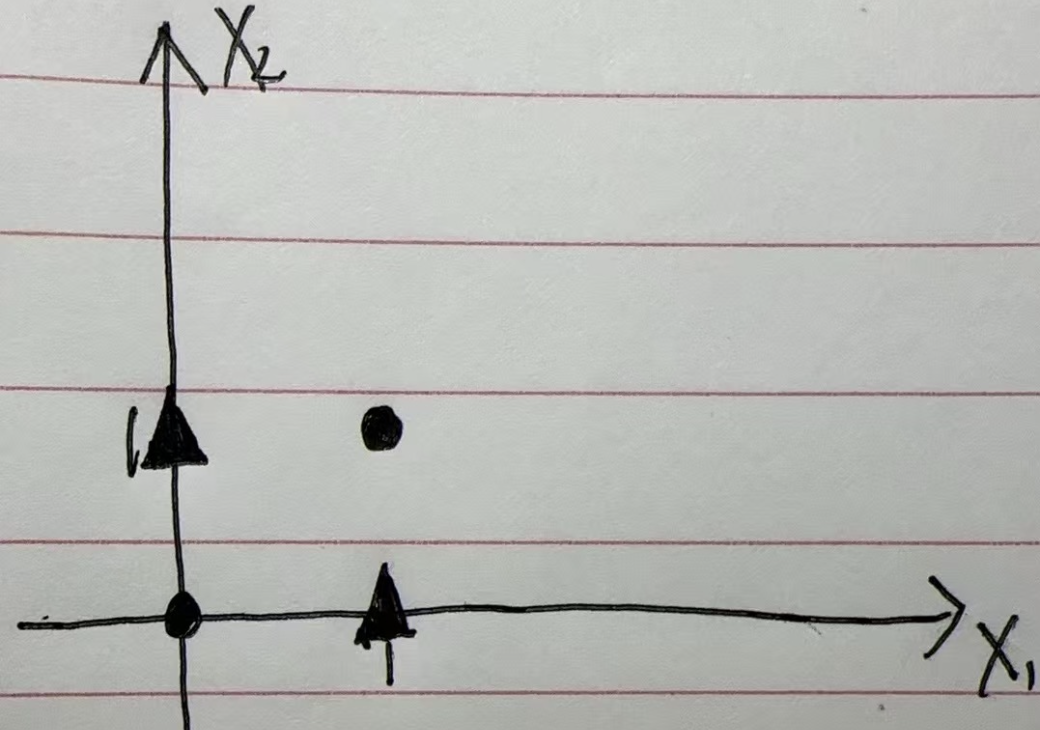 X₂
1
1
X₁